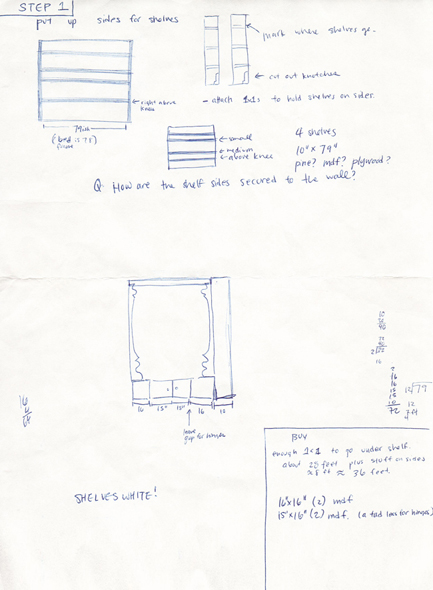 STEP 1
put up sides for shelves
mark where shelves go.
cut out knotches
- attach 1x1s to hold shelves on sides
right above
knee
79in
(bed is 75)
frame
small
medium
above knee
4 shelves
10" x 79"
pine? mdf? plywood?
Q. How are the shelf sides secured to the wall?
16 15" 15" 16 15
leave
gap for hinges
16
4
64
2
16
16
15
15
10
72
12 79
12
7 ft
BUY
enough 1x1 to go under shelf.
about 28 feet plus stuff on sides
≈ 8 ft ≈ 36 feet.
16"x16" (2) mdf
15"x16" (2) mdf. (a tad less for hinges)
SHELVES WHITE!